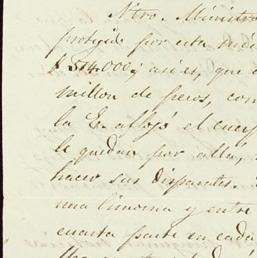 Ntro. Ministro
protegid por esta
$ 514.000 y asi es, que
millon de pesos, con
la E. aflojó el
le quedan por alla,
hacer sus disparates.
una limosna y entre
cuarta parte en cada